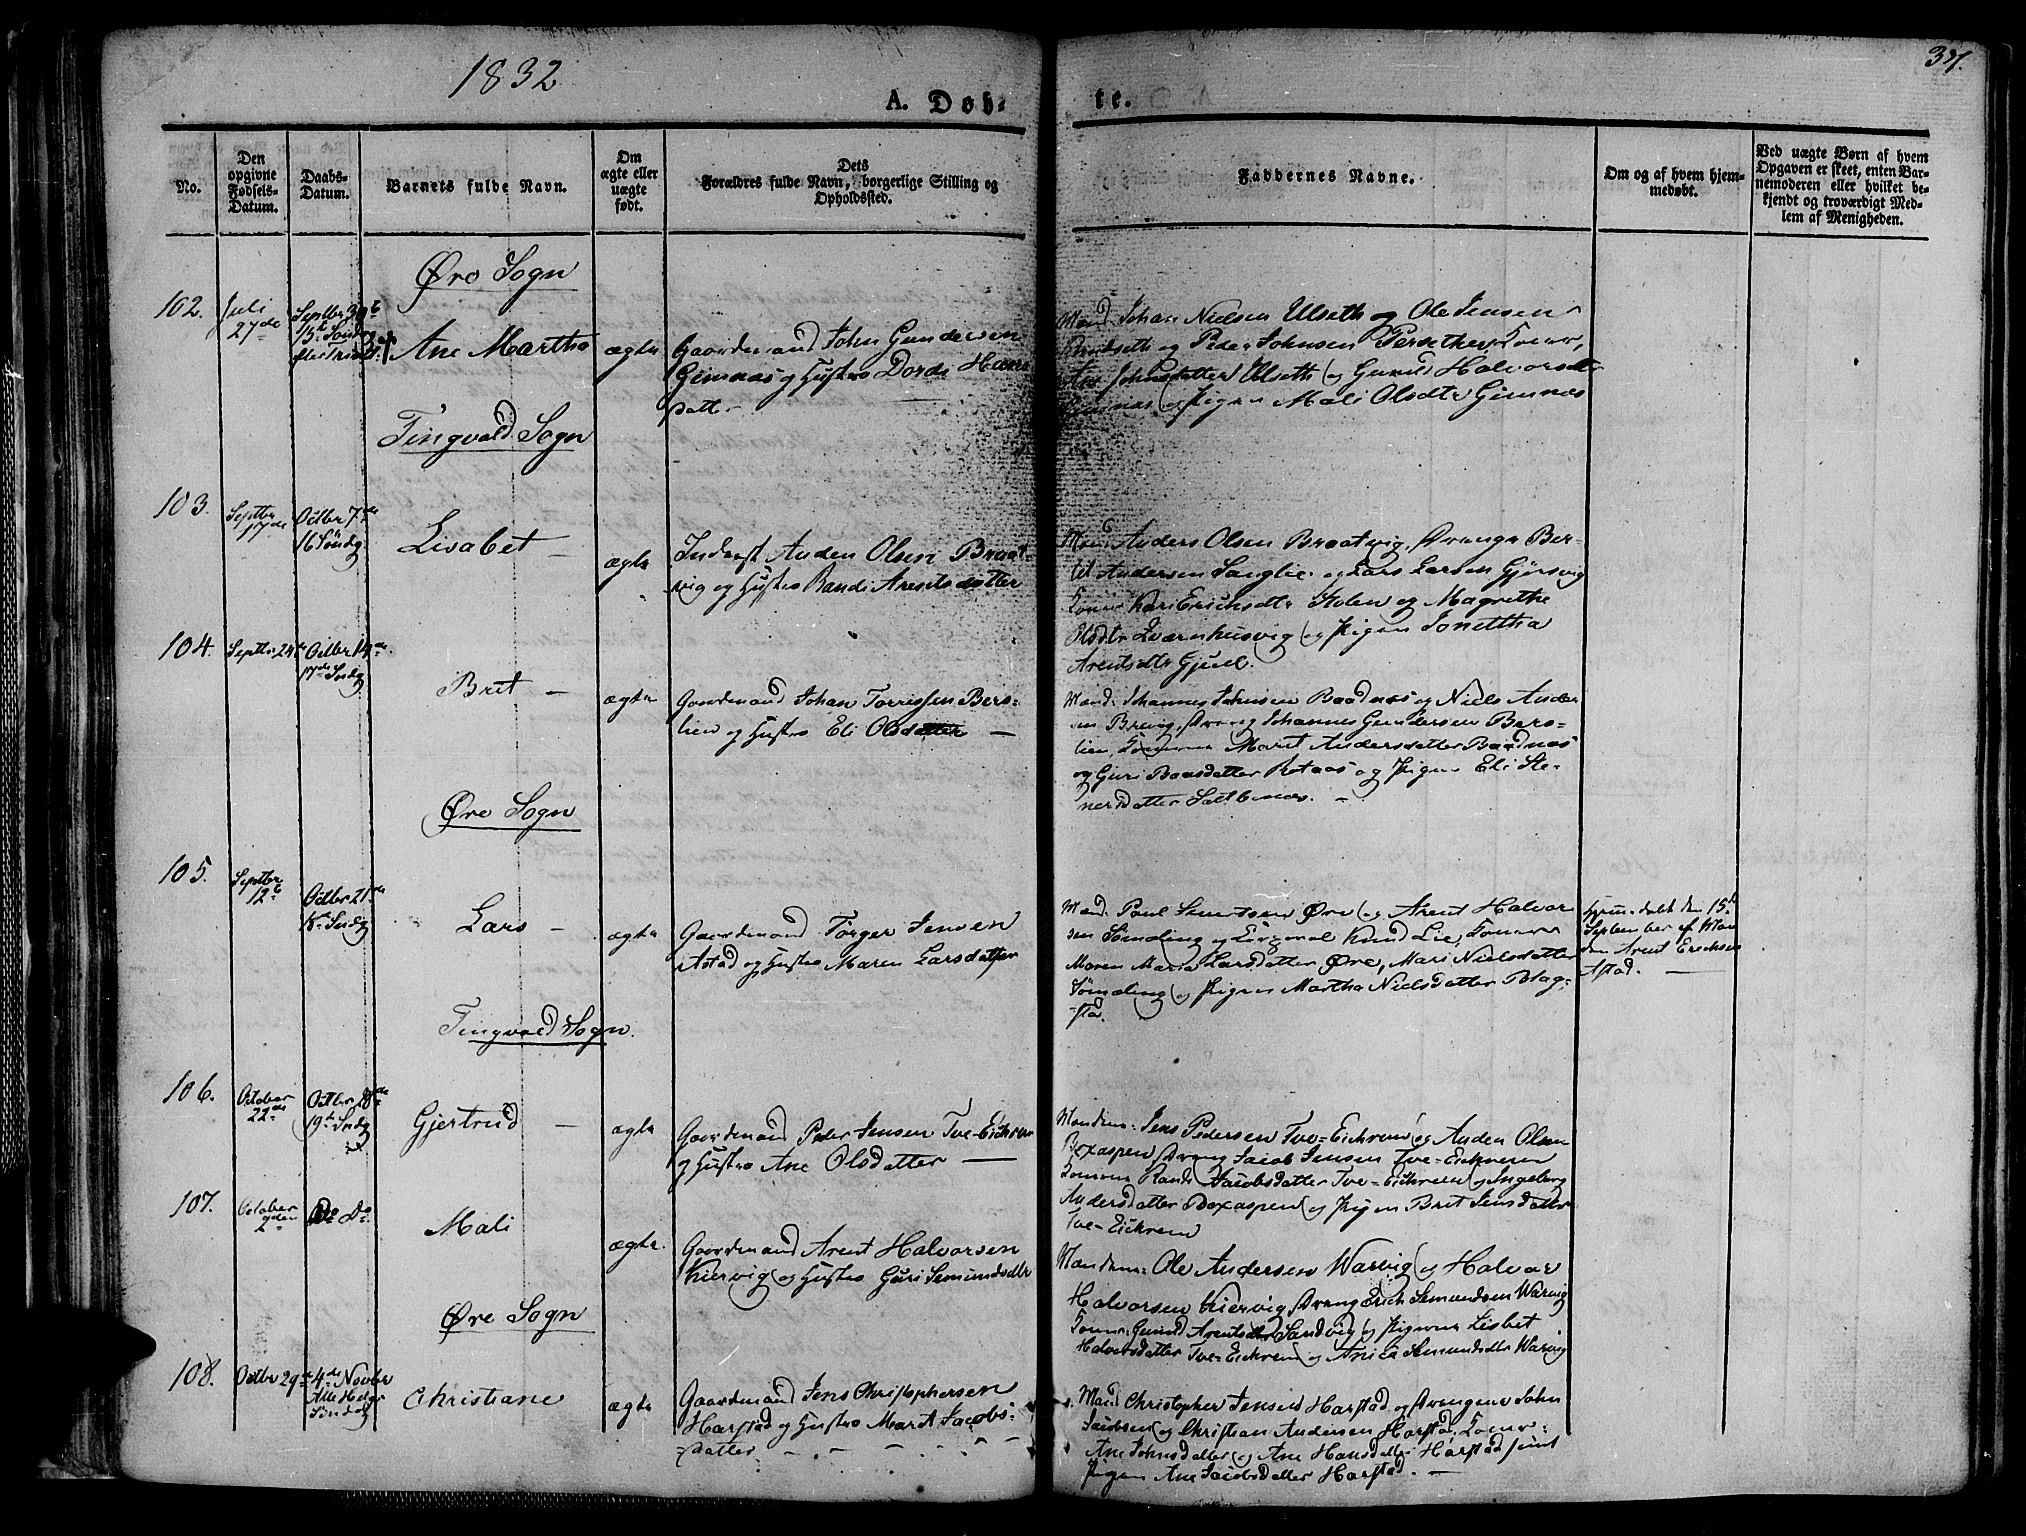 1832
37.
A. Døb-
te.
No.
Den
opgivne
Fødsels-
Datum.
Daabs-
Datum.
Barnets fulde Navn.
Om
ægte eller
uægte
født.
Dets
Forældres fulde Navn, borgerlige Stilling og
Opholdssted.
Faddernes Navne.
Om og af hvem hjem-
medøbt.
Ved uægte Børn af hvem
Opgaven er skeet, enten Bar-
nemoderen eller hvilket be-
kjendt og troværdigt Med-
lem af Menigheden.
Øre Sogn
102.
Juli
27de
Septbr 30te
15de Søndag
Ane Martha
ægte
Gaardmand John Gundersen
Gimnæs og Hustro Dordi
datter
Mænd: Johan Nielsen Ulseth og Ole Jensen
og Peder Johnsen
Ane Johnsdatter Ulseth og Gunild Halvorsdtr
Gimnæs og Pigen Mali Olsdtr Gimnæs
Tingvold Sogn
103.
Septbr
17de
Octbr 7de
16 Søndg
Lisabet
ægte
Inderst Anders Olsen Braat-
vig og Hustro Randi Arentsdatter
Mænd: Anders Olsen Braatvig, Drenge Ber-
til Andersen og Lars Larsen Gjørsvig
Koner Kari Erichsdtr Stolen og Magrethe
Olsdtr Qværnhusvig og Pigen Jonettha
Arentsdtr Gjuul.
104.
Septbr 24de
Octbr 14de
17de Sndg
Brit
ægte
Gaardmand Johan Torrissen Bers-
lien og Hustro Eli Olsdatter
Mænd: Johannes Johnsen Baadnæs og Niels Ander
sen Dreng Johannes Gundersen Bers-
lien, Konerne Marit Andersdatter Baadnæs
og Guri Baardsdatter og Pigen Eli Ste-
nersdatter
Øre Sogn
105.
Septbr
12te
Octbr 21de
18de Sndg
Lars
ægte
Gaardmand Torger Jensen
Astad og Hustro Maren Larsdatter
Mænd: Poul Øre og Arent Halvor
sen Sømeling og Knud Lie, Koner
Maren Maria Larsdatter Øre, Mari Nielsdatter
Sømeling og Pigen Martha Nielsdatter Blag-
stad.
Hjemmedøbt den 15de
September af Man
den Arent Erichsen
Astad.
Tingvold Sogn.
106.
October
22de
Octbr 28de
19de Sndg
Gjertrud
ægte
Gaardmand Peder Jensen Tve-Eichrem
og Hustro Ane Olsdatter
Mændene: Jens Pedersen Tve-Eichrem og Anders Olsen
Boxaspen, Dreng Jacob Jensen Tve-Eichrem
Konerne Randi Jacobsdatter Tve-Eichrem og Ingeborg
Andersdatter Boxaspen og Pigen Brit Jensdatter
Tve-Eichrem
107.
October
2den
Do Do
Mali
ægte.
Gaardmand Arent Halvorsen
Kiervig og Hustro Guri Semundsdtr
Mændene: Ole Andersen Warvig og Halvor
Halvorsen Kiervig, Dreng Erich Semundsen Warvig
Koner: Gunild Arentsdtr Sandvig og Pigerne Lisbet
Halvorsdatter Tve-Eichrem og Semundsdtr Warvig
Øre Sogn
108.
Octbr 29de
4de Novbr
Alle Helges
Søndag
Christiane
ægte
Gaardmand Jens Christophersen
Harstad og Hustro Marit Jacobs-
datter
Mænd Christopher Jensen Harstad og Drengene John
Jacobsen og Christian Andersen Harstad, Koner:
Ane Johnsdatter og Ane Hansdatter Harstad samt
Pigen Ane Jacobsdatter Harstad.